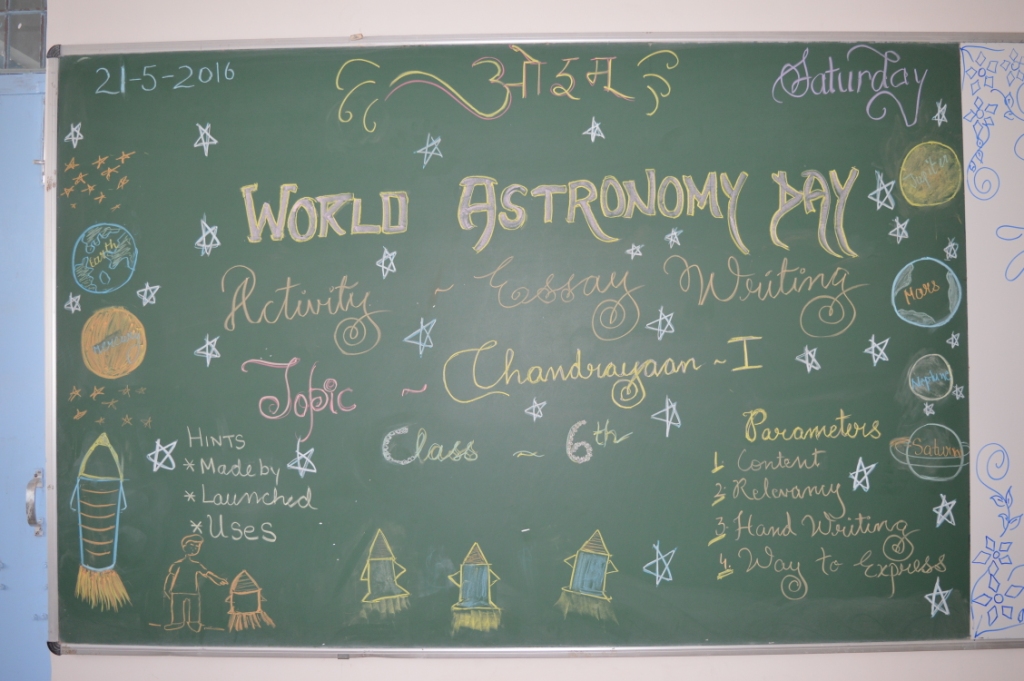 21-5-2016
ओ३म्
Saturday
WORLD ASTRONOMY DAY
Activity ~ Essay Writing
Topic ~ Chandrayaan ~ I
Class ~ 6th
HINTS
* Made by
* Launched
* Uses
Parameters
1. Content
2. Relevancy
3. Hand Writing
4. Way to Express
Earth
Jupiter
Mars
Neptune
Saturn